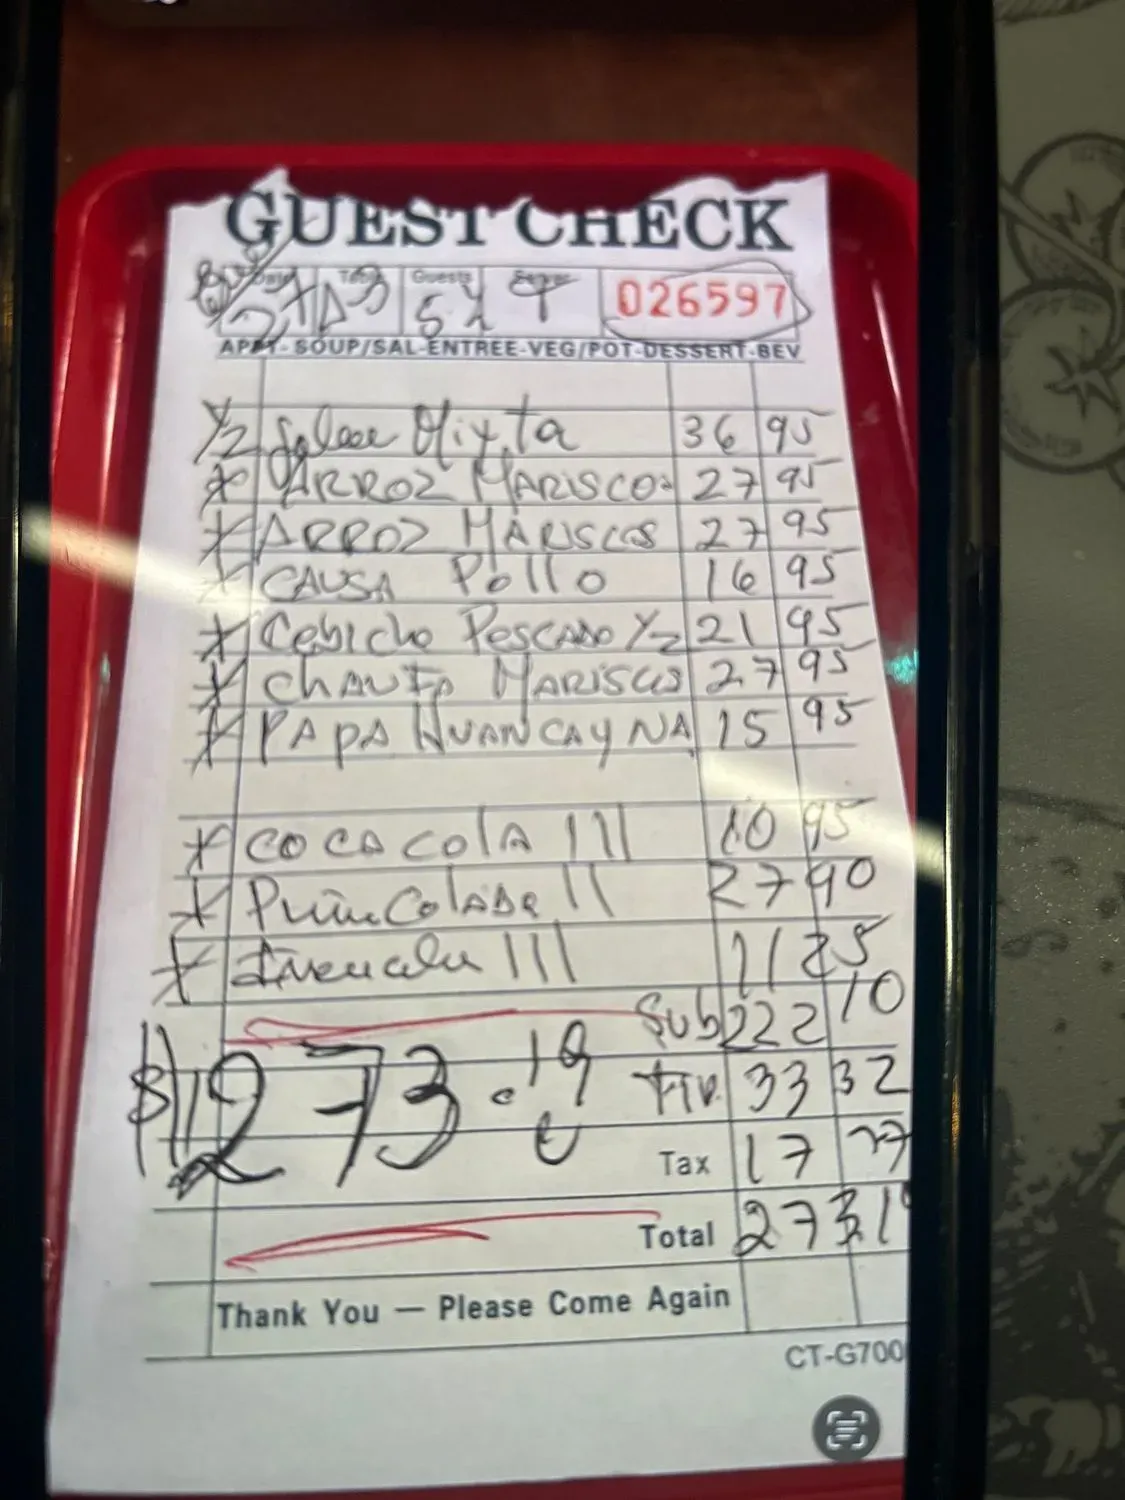 GUEST CHECK
Date Table Guests Server
026597
APPT-SOUP/SAL-ENTREE-VEG/POT-DESSERT-BEV
1/2 Jalea Mixta 36 95
ARROZ MARISCOS 27 95
ARROZ MARISCOS 27 95
CAUSA Pollo 16 95
Cebiche PESCADO 1/2 21 95
CHAUFA MARISCOS 27 95
PAPA HUANCAYNA 15 95
COCA COLA III 10 95
Piña Colada II 27 90
III 11 25
Sub 222 10
33 32
$ 273.19
Tax 17 77
Total 273.1
Thank You — Please Come Again
CT-G700